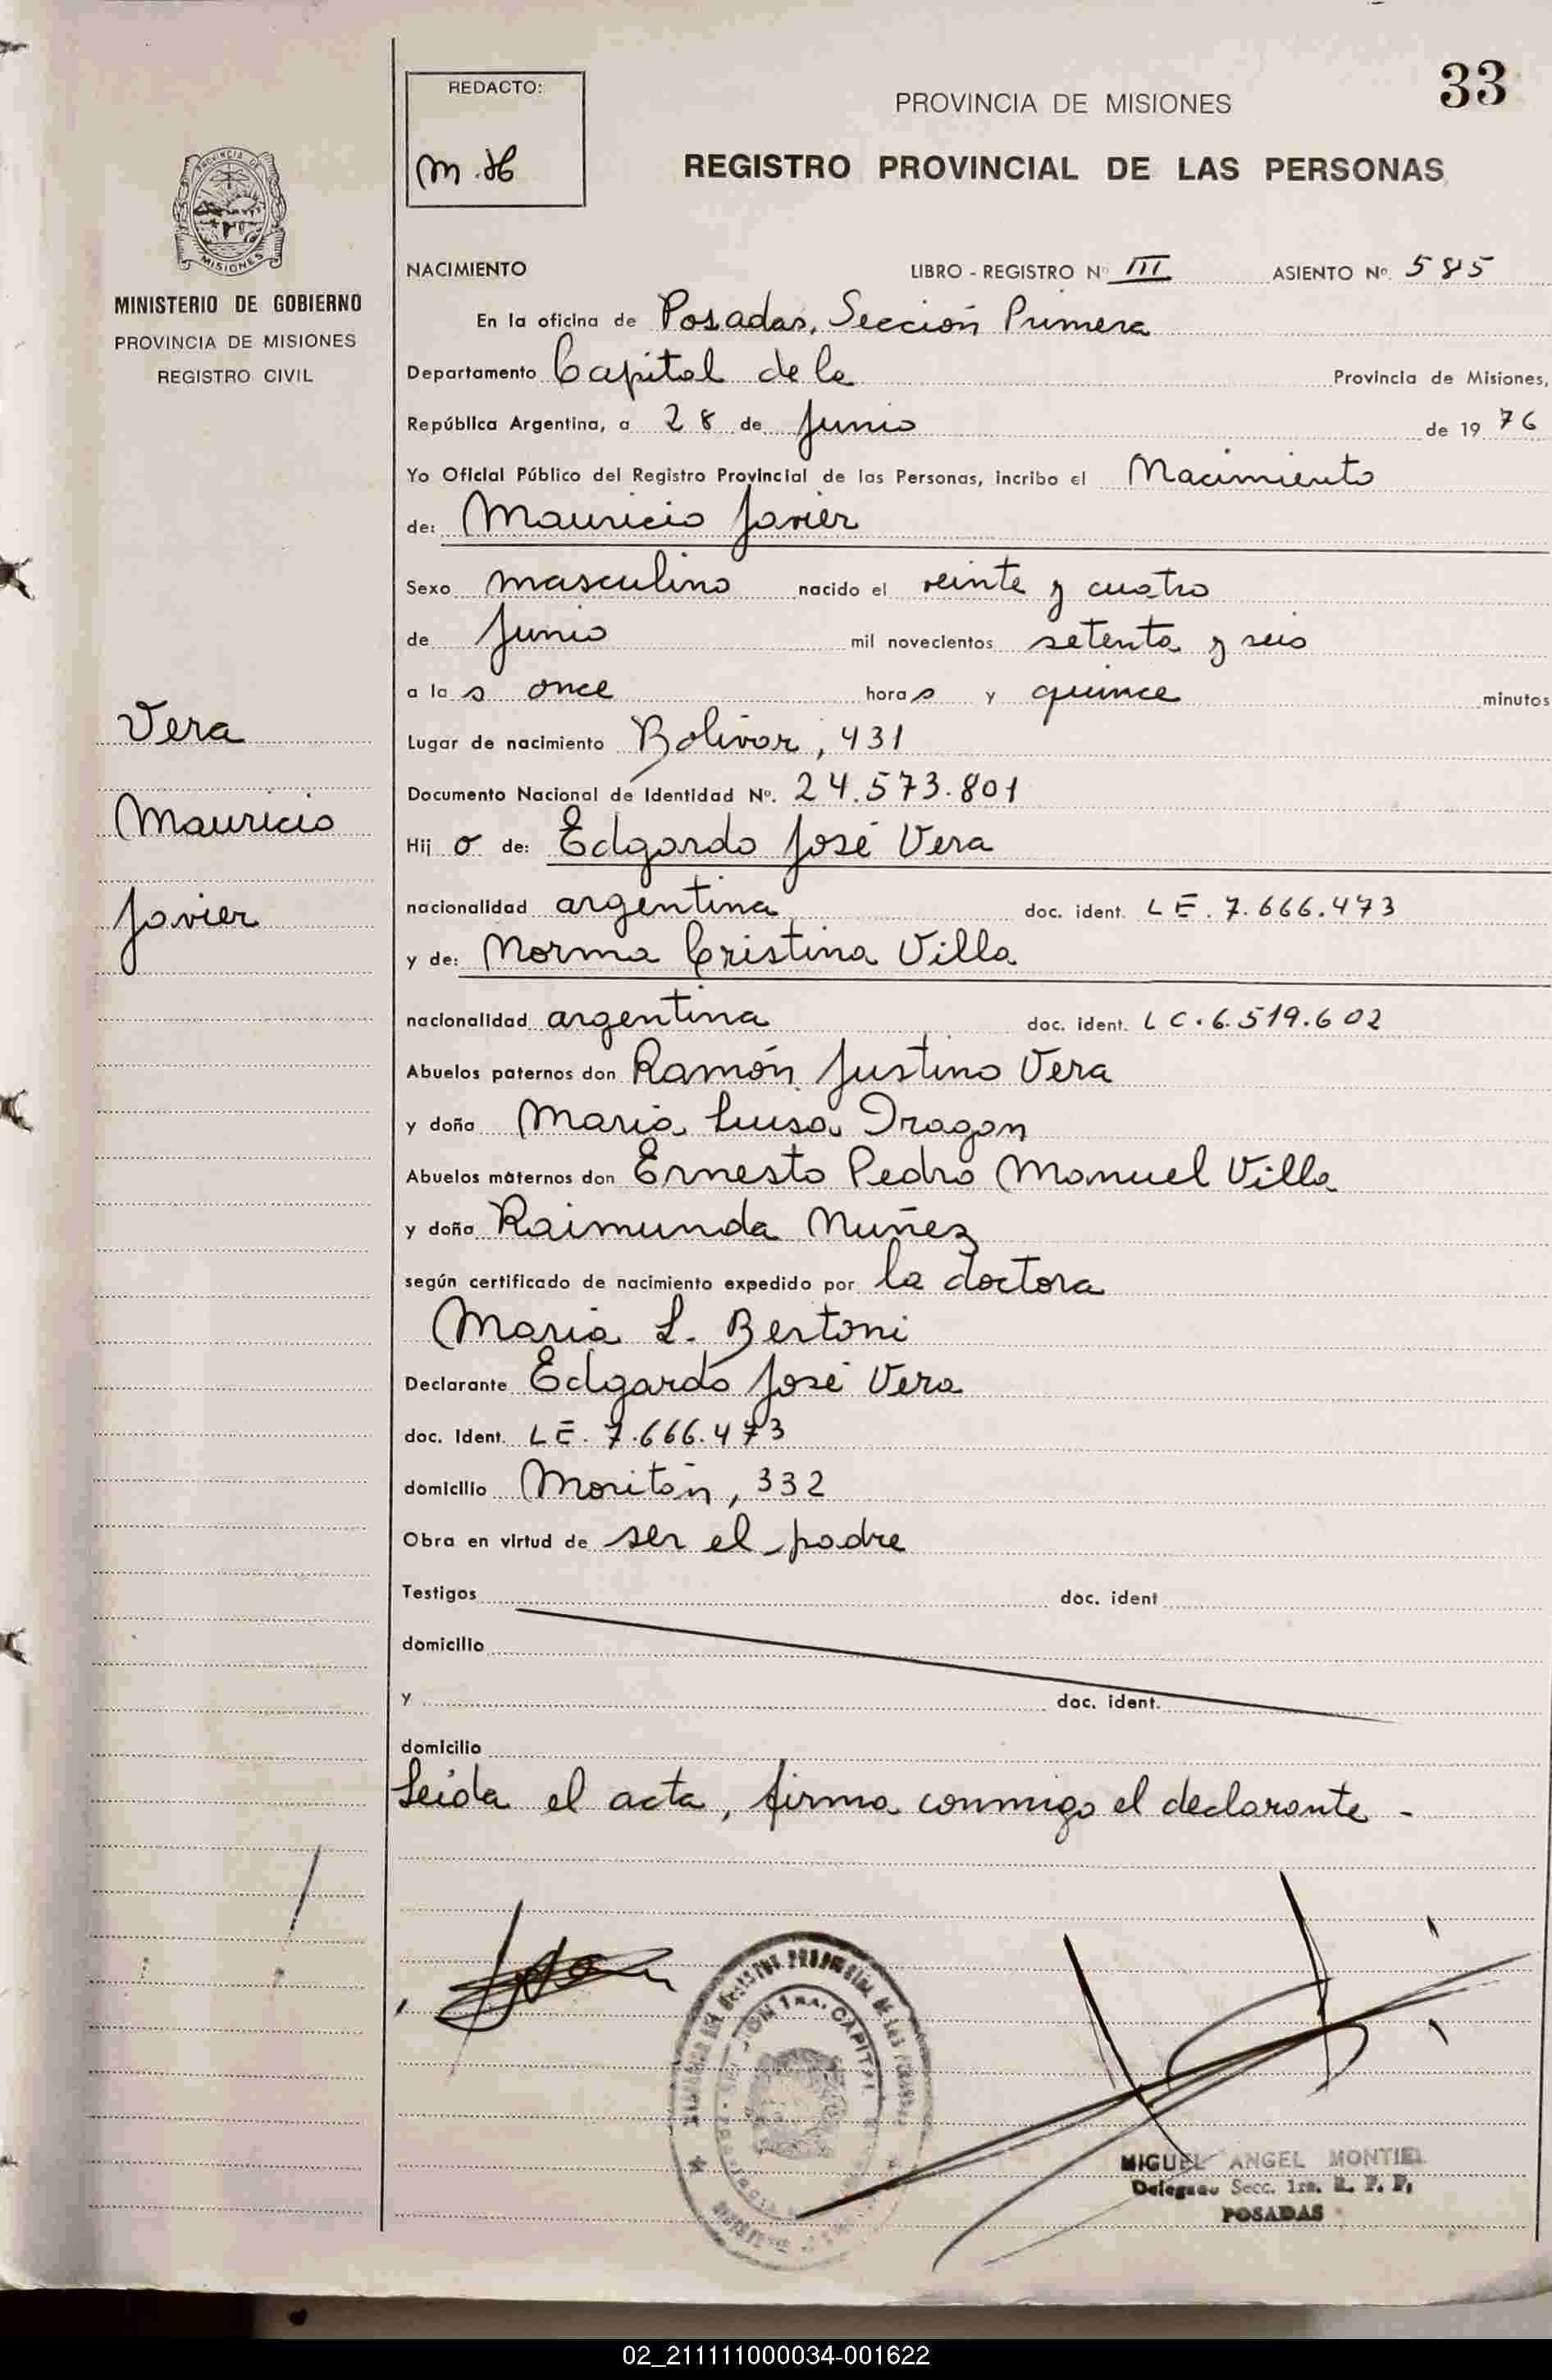 33
REDACTO:
m.H
PROVINCIA DE MISIONES
REGISTRO PROVINCIAL DE LAS PERSONAS
PROVINCIA DE
MISIONES
MINISTERIO DE GOBIERNO
PROVINCIA DE MISIONES
REGISTRO CIVIL
NACIMIENTO LIBRO - REGISTRO Nº III ASIENTO Nº 585
En la oficina de Posadas, Sección Primera
Departamento Capital de la Provincia de Misiones,
República Argentina, a 28 de Junio de 1976
Yo Oficial Público del Registro Provincial de las Personas, incribo el Nacimiento
de: Mauricio Javier
Sexo masculino nacido el veinte y cuatro
de Junio mil novecientos setenta y seis
a las once horas y quince minutos
Vera
Mauricio
Javier
Lugar de nacimiento Bolivar, 431
Documento Nacional de Identidad Nº. 24.573.801
Hijo de: Edgardo José Vera
nacionalidad argentina doc. ident. LE. 7.666.473
y de: Norma Cristina Villa
nacionalidad argentina doc. ident. LC. 6.519.602
Abuelos paternos don Ramón Justino Vera
y doña Maria Luisa Dragon
Abuelos maternos don Ernesto Pedro Manuel Villa
y doña Raimunda Nuñez
según certificado de nacimiento expedido por la doctora
Maria L. Bertoni
Declarante Edgardo José Vera
doc. Ident. LE. 7.666.473
domicilio Moritán, 332
Obra en virtud de ser el padre
Testigos doc. ident
domicilio
y doc. ident.
domicilio
Leida el acta, firma conmigo el declarante -
MIGUEL ANGEL MONTIEL
Delegado Secc. 1ra. R. P. P.
POSADAS
02_211111000034-001622